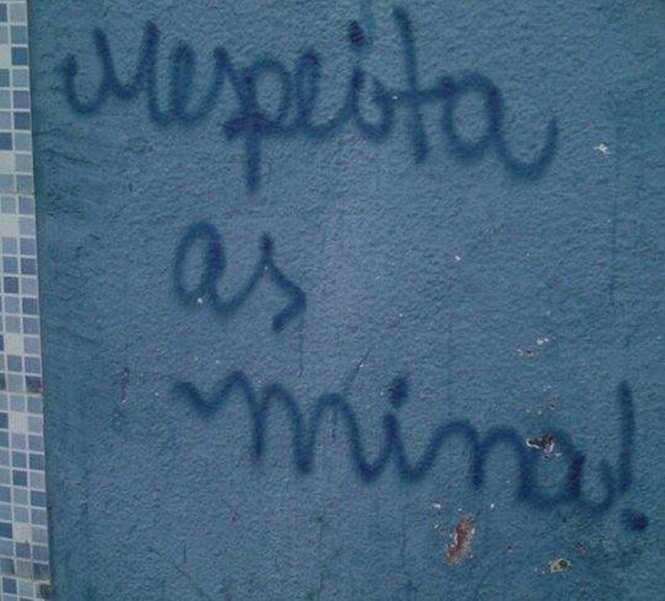 respeita
as
mina!